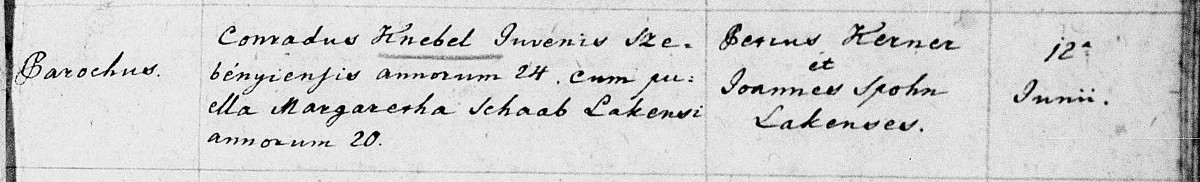 Parochus.
Conradus Knebel Juvenis Sze-
bényiensis annorum 24. cum pu=
ella Margaretha Schaab Lakensi
annorum 20.
Petrus Kerner
et
Joannes Spohn
Lakenses.
12ª
Junii.